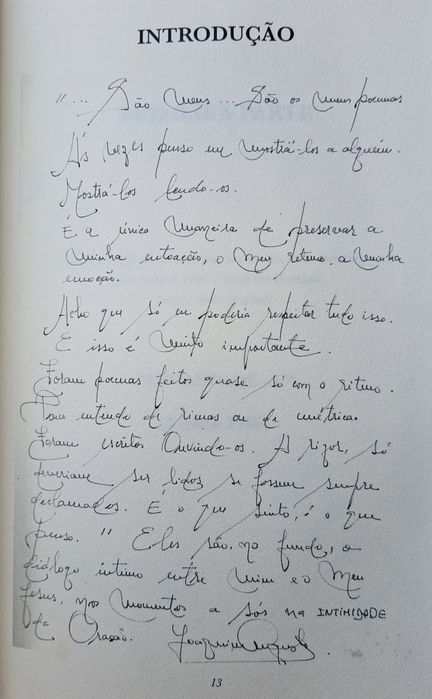 INTRODUÇÃO
"... São meus ... São os meus poemas
Às vezes penso em mostrá-los a alguém.
Mostrá-los lendo-os.
É a única maneira de preservar a
minha entoação, o meu ritmo, a minha
emoção.
Acho que só eu poderia respeitar tudo isso.
E isso é muito importante.
Foram poemas feitos quase só com o ritmo.
Nam entendo de rimas ou de métrica.
Foram escritos Ouvindo-os. A rigor, só
deveriam ser lidos se fossem sempre
declamados. É o que sinto, é o que
penso." Eles são, no fundo, o
diálogo íntimo entre mim e o Meu
Jesus, nos momentos a sós na INTIMIDADE
da Oração.
13